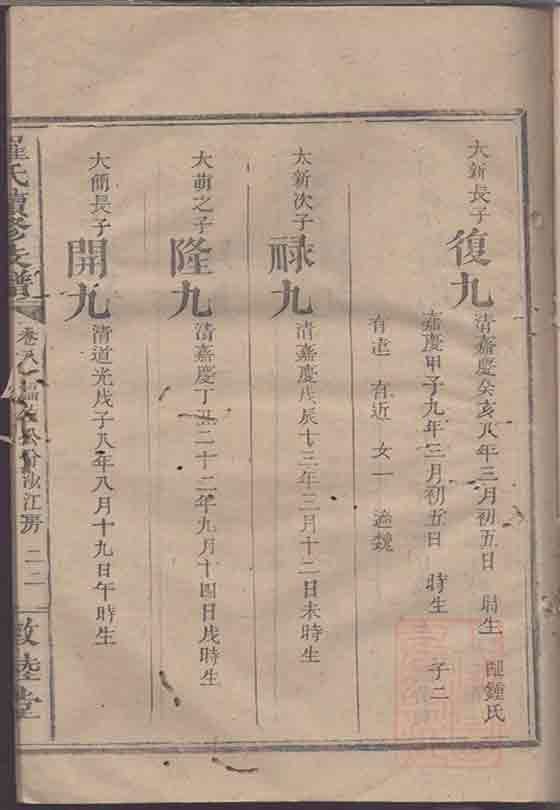 大新長子
復九
清嘉慶癸亥八年三月初五日 時生 配鍾氏
嘉慶甲子九年三月初五日 時生 子二
有近 女一 適魏
大新次子
祿九
清嘉慶戊辰十三年三月十二日未時生
大萌之子
隆九
清嘉慶丁丑二十二年九月十四日戌時生
大簡長子
開九
清道光戊子八年八月十九日午時生
羅氏續修支譜
卷八
公分沙江房
二二
敦睦堂